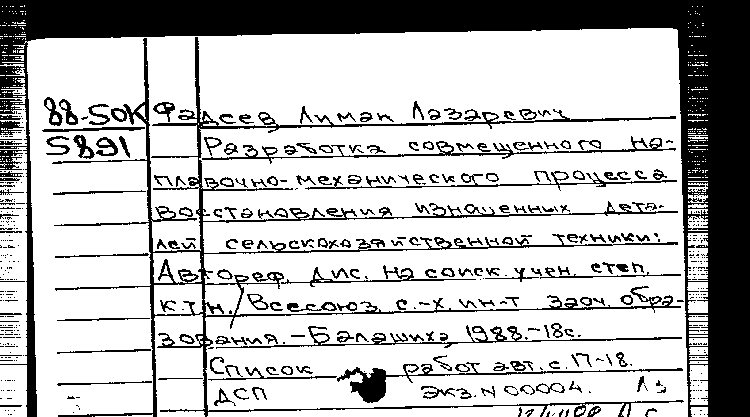 88-50К Фадеев Лиман Лазаревич
5891 Разработка совмещенного на-
плавочно-механического процесса
восстановления изношенных дета-
лей сельскохозяйственной техники:
Автореф. дис. на соиск. учен. степ.
к.т.н./Всесоюз. с.-х. ин-т заоч. обра-
зования.-Балашиха, 1988.-18с.
Список работ авт. с. 17-18.
ДСП Экз. N 00004.